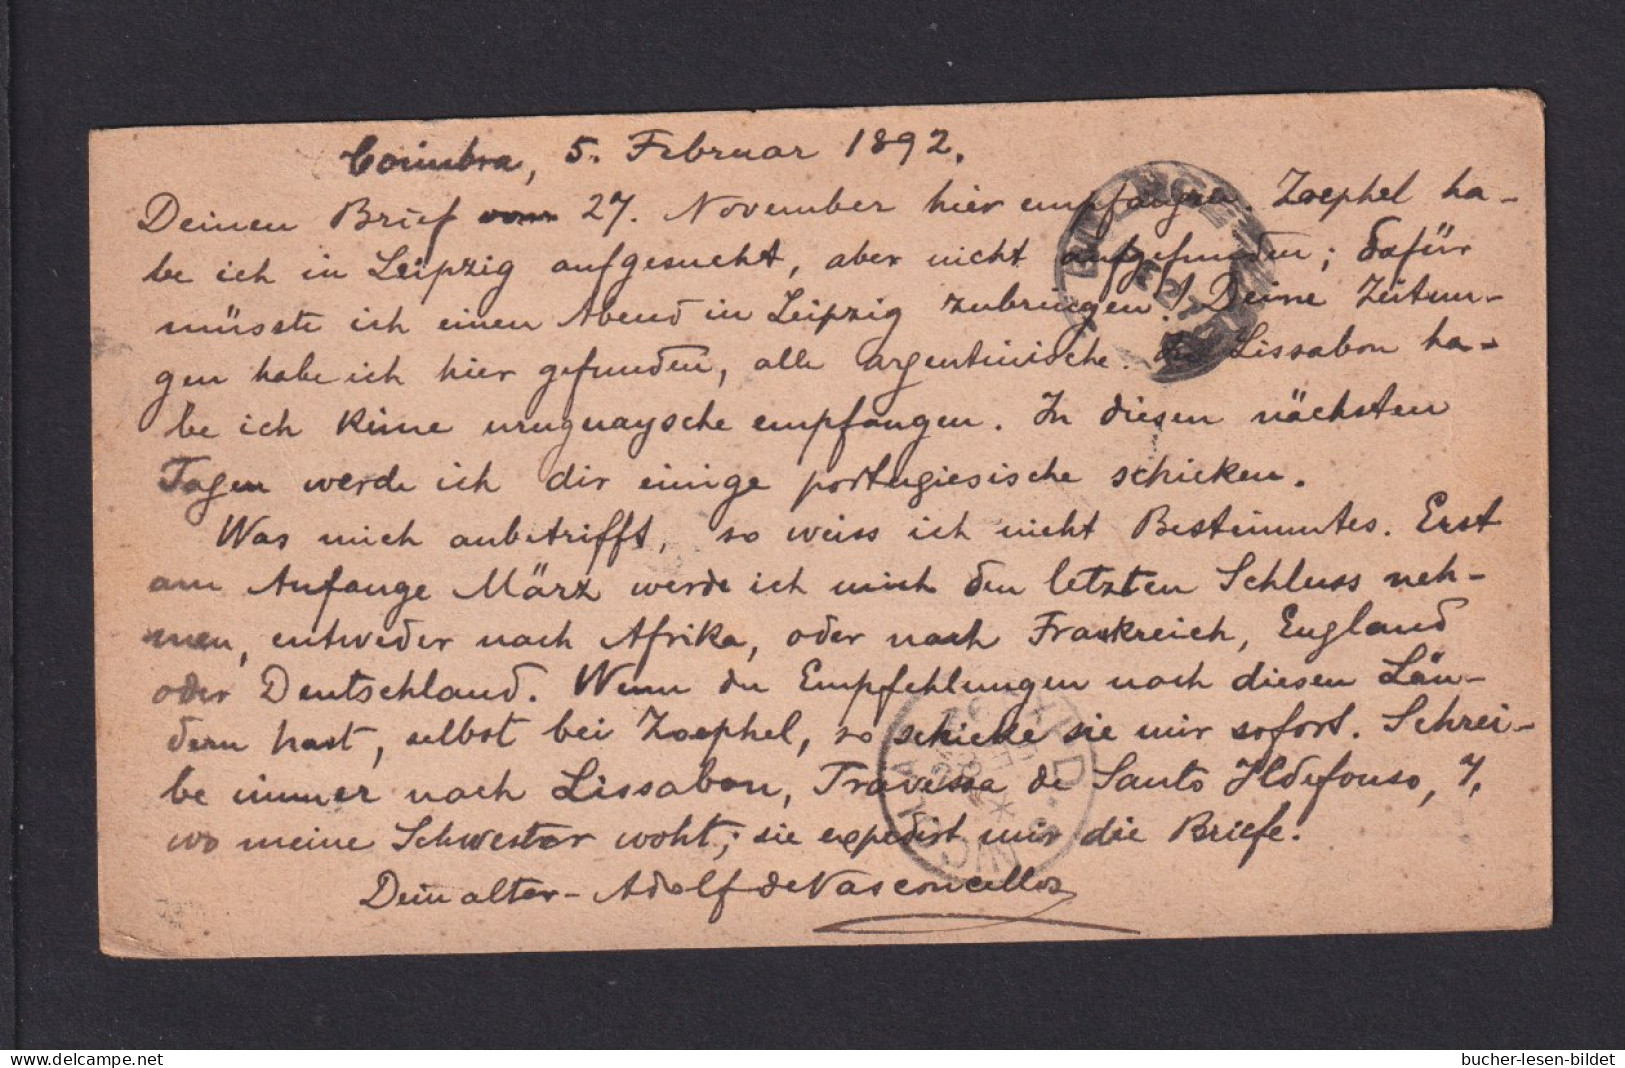 Coimbra, 5. Februar 1892.
Deinen Brief vom 27. November hier empfangen. Zoephel ha-
be ich in Leipzig aufgesucht, aber nicht aufgefunden; dafür
müsste ich einen Abend in Leipzig zubringen! Deine Zeitun-
gen habe ich hier gefunden, alle argentinische. In Lissabon ha-
be ich keine uruguaysche empfangen. In diesen nächsten
Tagen werde ich dir einige portugiesische schicken.
Was mich anbetrifft, so weiss ich nicht Bestimmtes. Erst
am Anfange März werde ich mich den letzten Schluss neh-
men, entweder nach Afrika, oder nach Frankreich, England
oder Deutschland. Wenn du Empfehlungen nach diesen Län-
dern hast, selbst bei Zoephel, so schicke sie mir sofort. Schrei-
be immer nach Lissabon, Travessa de Santo Ildefonso, 7,
wo meine Schwester woht; sie expedirt mir die Briefe.
Dein alter - Adolf de Vasconcellos
delcampe.net
bucher-lesen-bildet